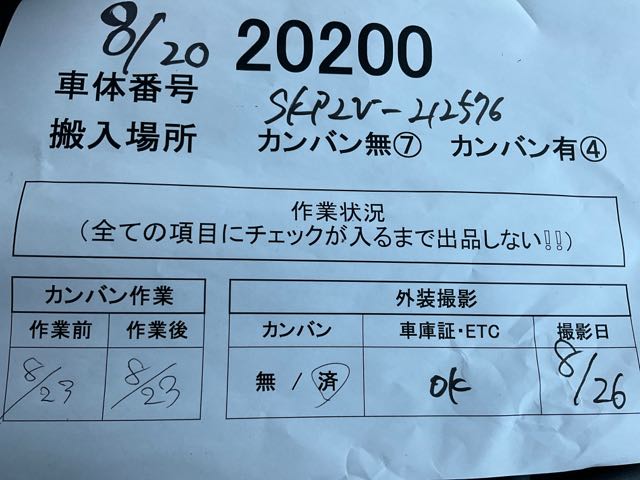 8/20 20200
車体番号 SKP2V-212576
搬入場所 カンバン無⑦ カンバン有④
作業状況
(全ての項目にチェックが入るまで出品しない!!)
カンバン作業 外装撮影
作業前 作業後 カンバン 車庫証・ETC 撮影日
8/23 8/23 無 / 済 OK 8/26